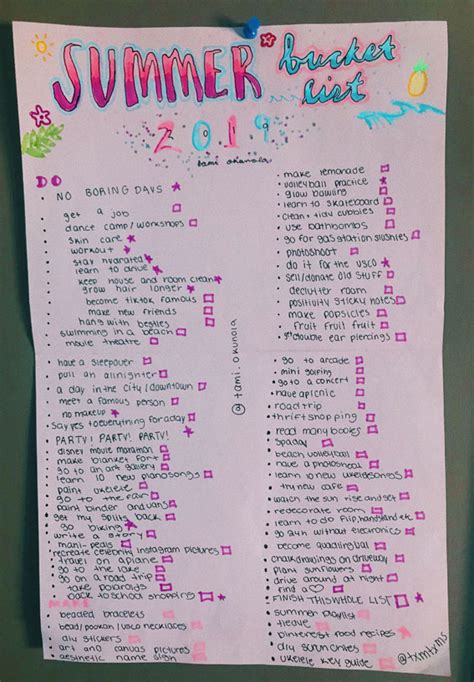 SUMMER bucket list
2019
tami okunola
DO
NO BORING DAYS
get a job
dance camp/workshops
skin care
workout
stay hydrated
learn to drive
keep house and room clean
grow hair longer
become tiktok famous
make new friends
hang with besties
swimming in a beach
movie theatre
have a sleepover
pull an allnighter
a day in the city/downtown
meet a famous person
no makeup
say yes to everything for a day
PARTY! PARTY! PARTY!
disney movie marathon
make blanket fort
go to an art gallery
learn 10 new piano songs
paint ukelele
go to the fair
paint binder and vans
get my splits back
go biking
write a story
mani-pedis
recreate celebrity instagram pictures
travel on a plane
go to the lake
go on a road trip
take polaroids
back to school shopping
MAKE
beaded bracelets
bead/pookah/vsco necklaces
diy stickers
art and canvas pictures
aesthetic name sign
@tami.okunola
make lemonade
volleyball practice
glow bowling
learn to skateboard
clean + tidy cubbies
use bathbombs
go for gas station slushies
photoshoot
do it for the vsco
sell/donate old stuff
declutter room
positivity sticky notes
make popsicles
fruit fruit fruit
double ear piercings
go to arcade
mini golfing
go to a concert
have a picnic
road trip
thrift shopping
read many books
spa day
beach volleyball
have a photoshoot
learn 10 new ukelele songs
try new cafe
watch the sun rise and set
redecorate room
learn to do flip, handstand etc.
go 24h without electronics
become quadlingual
chalk drawings on driveway
plant sunflowers
drive around at night
find a ♡
FINISH THIS WHOLE LIST
summer playlist
tiedye
pinterest food recipes
diy scrunchies
ukelele key guide
@txmtxms